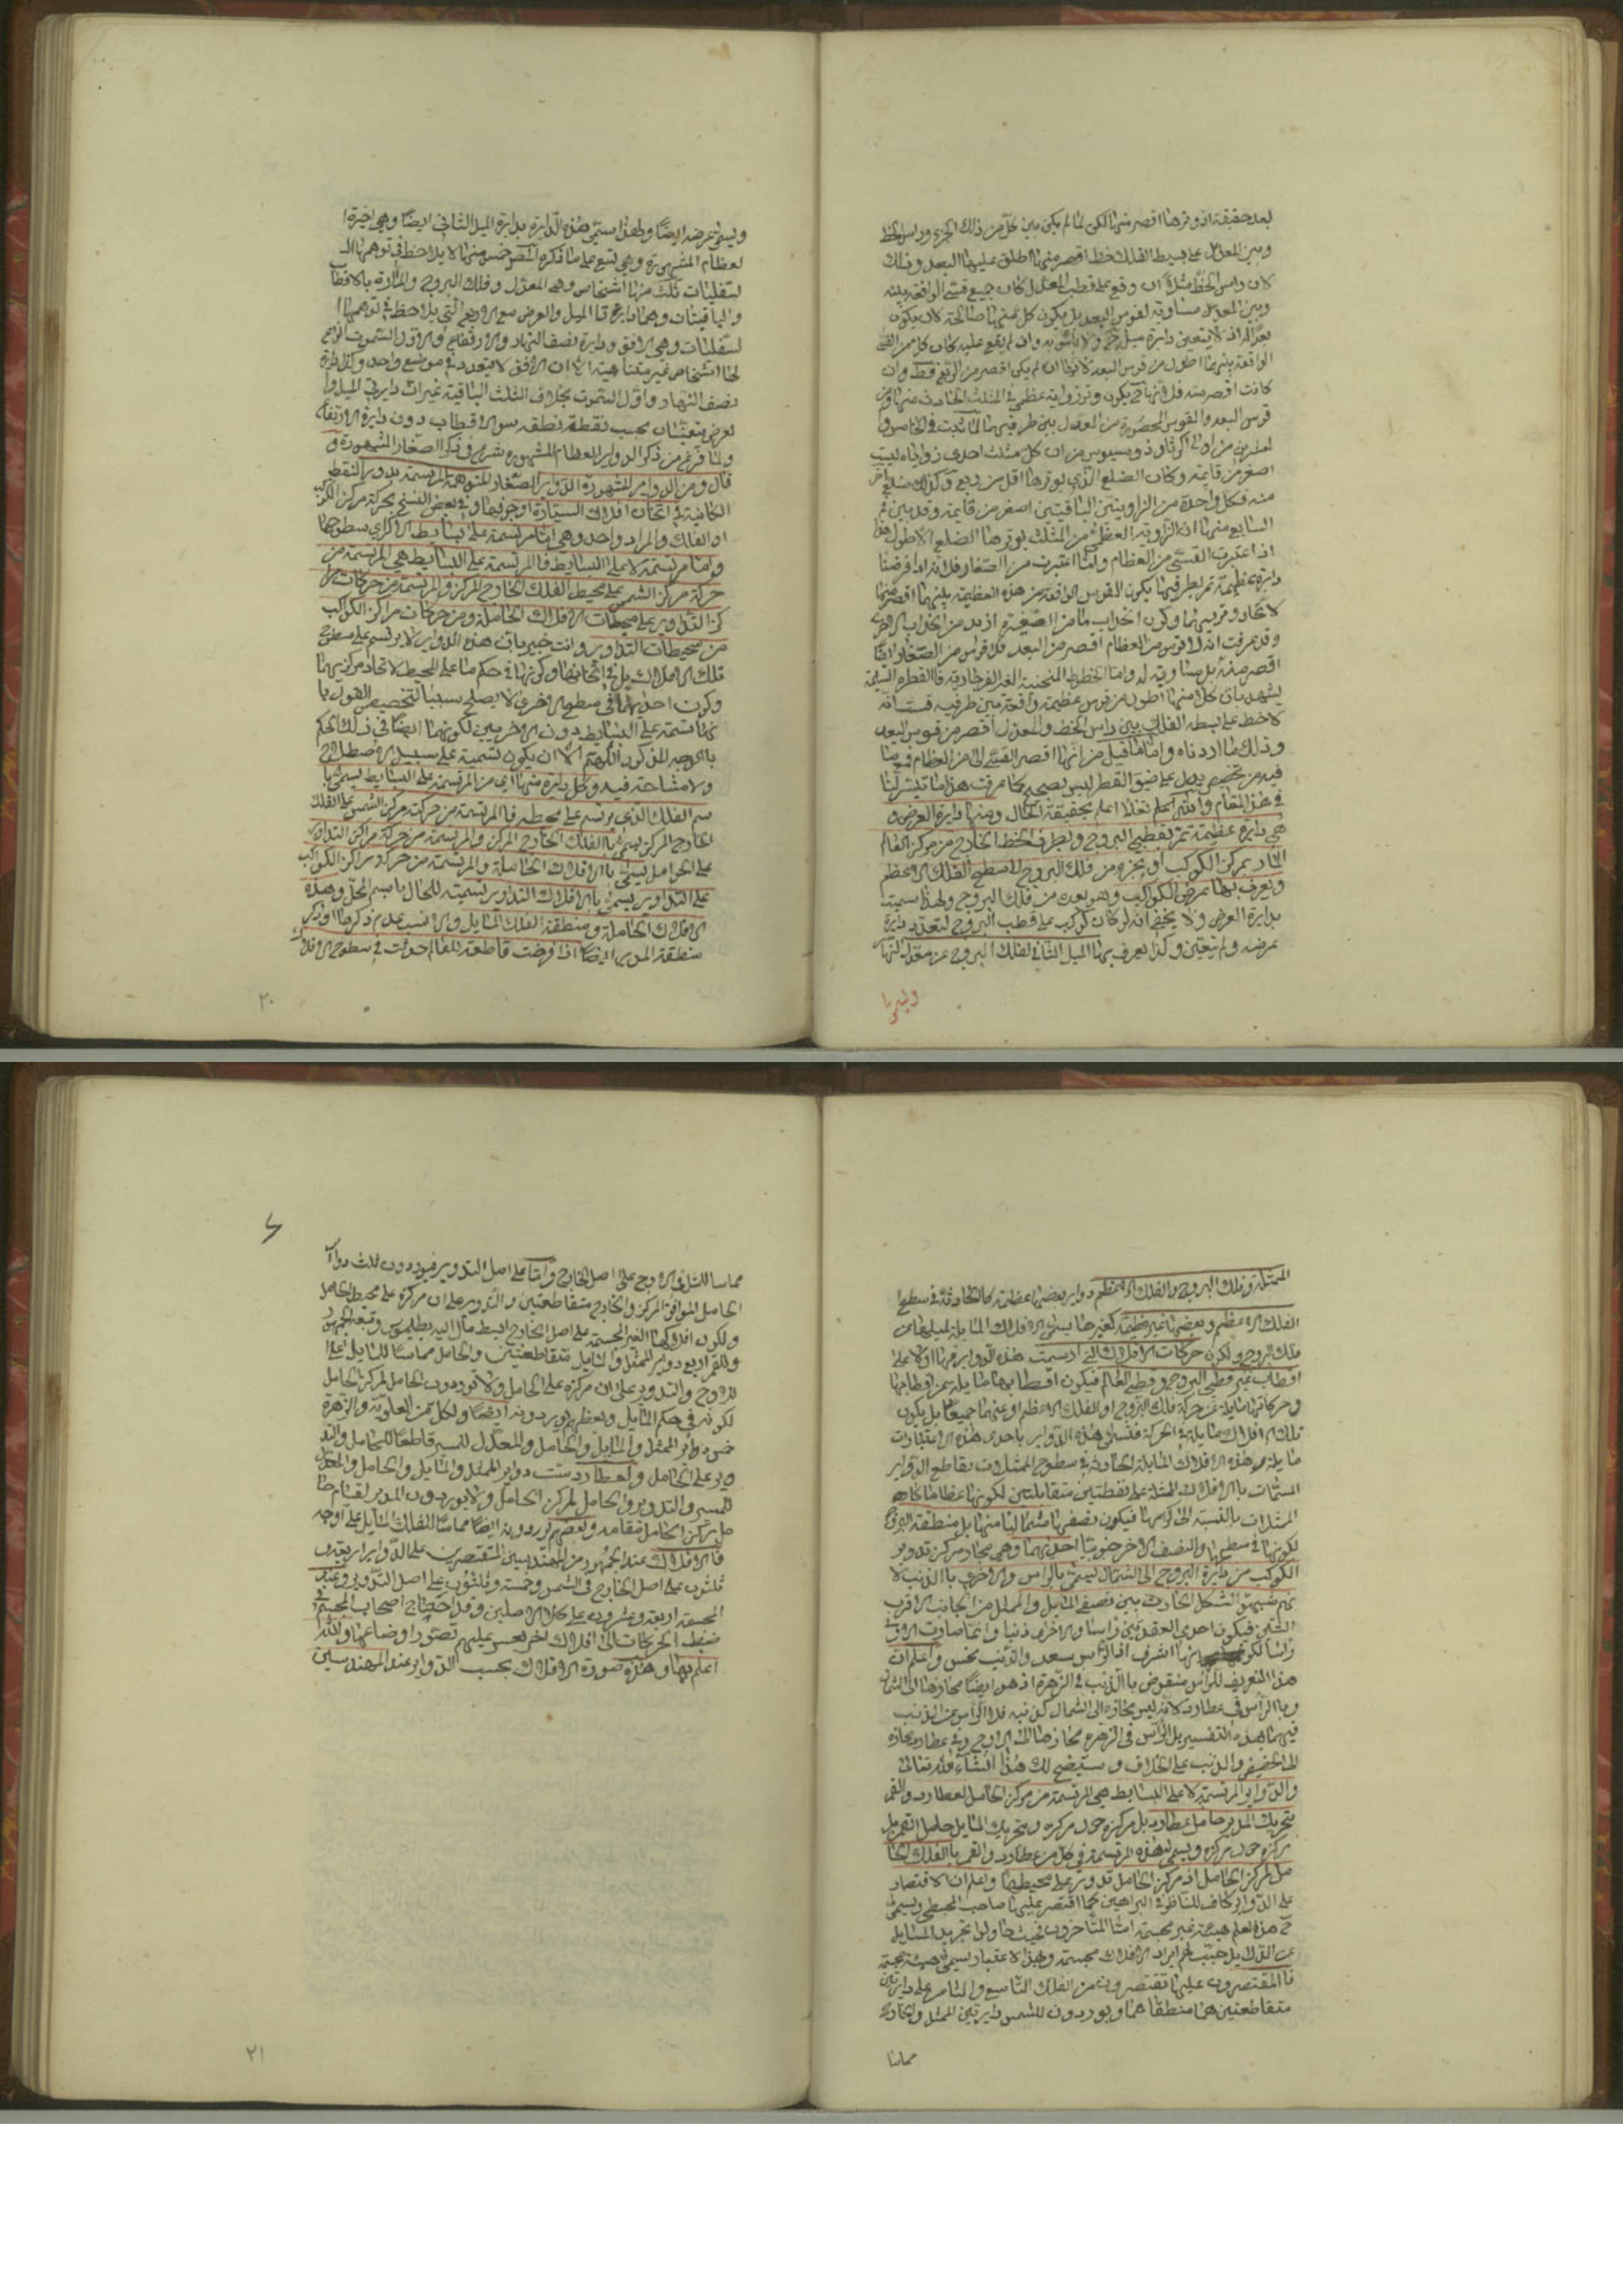 بعد حقيقة اذ وترها اقصر منها لكن لما لم يكن بين كل من ذلك الجزء وراس الخط
وبين المعدل على بسيط الفلك خط اقصر منها اطلق عليها البعد وذلك
لان راس الخط مثلا ان وقع على قطب المعدل كان جميع قسى الواقعة بينه
وبين المعدل مساوية لقوس البعد بل يكون كل منها صالحة لان يكون
بعدا له اذ لا يتعين دايرة ميل ح ولا باس به وان لم يقع عليه كان كل من القسى
الواقعة بينهما اطول من قوس البعد لانها ان لم يكن اقصر من الربع فقط وان
كانت اقصر منه فلانها ح يكون وتر زاوية عظمى في المثلث الحادث منها ومن
قوس البعد والقوس المحصورة من المعدل بين طرفيهما لما ثبت في الخامس و
العشرين من اولى اكر ثاوذوسيوس من ان كل مثلث احدى زواياه ليست
اصغر من قايمة وكان الضلع الذي يوترها اقل من ربع وكذلك ضلع اخر
منه فكل واحدة من الزاويتين الباقيتين اصغر من قايمة وقد بين في
السابع منها ان الزاوية العظمى من المثلث يوترها الضلع الاطول هذا
اذا اعتبرت القسى من العظام واما اعتبرت من الصغار فلانه اذا فرضنا
دايرة عظيمة تمر بطرفيها يكون القوس الواقعة من هذه العظيمة بينهما اقصر منها
لاتحاد وتريهما وكون انحداب ما من الصغيرة ازيد من انحداب الاخرى
وقد عرفت انه لا قوس من العظام اقصر من البعد فلا قوس من الصغار ايضا
اقصر منه بل مساوية له واما الخطوط المنحنية الغير الفرجارية فالفطرة السليمة
يشهد بان كلا منها اطول من قوس عظيمة واقعة بين طرفيه فثبت انه
لا خط على بسيط الفلك بين راس الخط والمعدل اقصر من قوس البعد
وذلك ما اردناه واما ما قيل من انها اقصر القسى التى من العظام فمع ما
فيه من تخصيص يدل على ضيق الفطن ليس بصحيح كما عرفت هذا ما تيسر لنا
في هذا المقام والله اعلم بحقيقة الحال ومنها دايرة العرض و
هي دايرة عظيمة تمر بقطبي البروج وبطرف الخط الخارج من مركز العالم
المار بمركز الكوكب او بجزء من فلك البروج الى سطح الفلك الاعظم
ويعرف بها عرض الكوكب وهو بعده من فلك البروج ولهذا سميت
بدايرة العرض ولا يخفى انه لو كان كوكب على قطب البروج لتعدد دايرة
عرضه ولم يتعين وكذا يعرف بها الميل الثاني لفلك البروج عن معدل النهار
ويسمى
ويسمى عرضه ايضا ولهذا سمى هذه الدايرة بدايرة الميل الثاني ايضا وهي اخيرة
لعظام المشهورة وهي تسع على ما ذكره المص خمس منها لا يلاحظ في توهمها ا
لسفليات ثلث منها اشخاص وهي المعدل وفلك البروج والمارة بالاقطاب
والباقيتان وهما دايرتا الميل والعرض مع الاربع التي يلاحظ في توهمها ا
لسفليات وهي الافق ودايرة نصف النهار والارتفاع واول السموت انواع
لها اشخاص غير متناهية الا ان الافق لا يتعدد في موضع واحد وكذا دايرة
نصف النهار واول السموت بخلاف الثلث الباقية غير ان دايرتي الميل وا
لعرض يتعينان بحسب نقطة نقطة سوى الاقطاب دون دايرة الارتفاع
ولما فرغ من ذكر الدواير العظام المشهورة شرع في ذكر الصغار المشهورة و
قال ومن الدواير المشهورة الدواير الصغار المتوهمة المرتسمة بدور النقط
الكائنة في اثخان افلاك السيارة او جرفيها وفي بعض النسخ بحركة مركز الكوكب
او الفلك والمراد واحد وهي اما مرتسمة على بسايط الاكر اى سطوحها
واما مرتسمة لا على البسايط فالمرتسمة على البسايط هي المرتسمة من
حركة مركز الشمس على محيط الفلك الخارج المركز والمرتسمة من حركات مرا
كز التداوير على محيطات الافلاك الحاملة ومن حركات مراكز الكواكب
من محيطات التداوير وانت خبير بان هذه الدواير لا يرتسم على سطوح
تلك الافلاك بل في اثخانها وكونها في حكم ما على المحيط لاتحاد مركزيهما
وكون احديهما في سطح الاخرى لا يصلح سببا لتخصيص القول با
نها مرتسمة على البسايط دون الاخريين لكونهما ايضا في ذلك الحكم
بالوجه المذكور اللهم الا ان يكون تسمية على سبيل الاصطلاح
ولا مشاحة فيه وكل دايرة منها اى من المرتسمة على البسايط يسمى با
سم الفلك الذى يرتسم على محيطه فالمرتسمة من حركة مركز الشمس على الفلك
الخارج المركز يسمى بالفلك الخارج المركز والمرتسمة من حركة مراكز التداوير
على الحوامل يسمى بالافلاك الحاملة والمرتسمة من حركة مراكز الكواكب
على التداوير يسمى بالافلاك التداوير تسمية للحال باسم المحل وهذه
الافلاك الحاملة ومنطقة الفلك المايل والانسب عدم ذكرها او ذكر
منطقة المدير ايضا اذا فرضت قاطعة للعالم حدثت في سطوح الافلاك
٢٠
الممثلة وفلك البروج والفلك الاعظم دواير بعضها عظيمة كالحادثة في سطح
الفلك الاعظم وبعضها غير عظيمة كغيرها يسمى الافلاك المايلة لميلها عن
فلك البروج ولكون حركات الافلاك التى ارتسمت هذه الدواير منها اولا على
اقطاب غير قطبي البروج وقطبي العالم فيكون اقطابها مايلة عن اقطابها
وحركاتها مايلة عن حركة فلك البروج او الفلك الاعظم او عنهما جميعا بل يكون
تلك الافلاك مايلة في الحركة فتسمى هذه الدواير باحدى هذه الاعتبارات
مايلة وهذه الافلاك المايلة الحادثة في سطوح الممثلات يقاطع الدواير
المسماة بالافلاك الممثلة على نقطتين متقابلتين لكونها عظاما كما هي
الممثلات بالنسبة الى كراتها فيكون نصفها شماليا منها بل منطقة البروج
لكونها في سطحها والنصف الاخر جنوبيا احديهما وهي مجاز مركز تدوير
الكوكب من دايرة البروج الى الشمال يسمى بالراس والاخرى بالذنب لا
نهم شبهوا الشكل الحادث بين نصفي المايل والممثل من الجانب الاقرب
بالتنين فيكون احدى العقدتين راسا والاخرى ذنبا وانما صارت الاولى
راسا لكونها اشرف اذ الراس سعد والذنب نحس واعلم ان
هذا التعريف للراس منقوض بالذنب في الزهرة اذ هو ايضا مجازها الى الشمال
وبالراس في عطارد لانه ليس مجازه الى الشمال كذنبه فلا الراس عن الذنب
فيهما بهذه التفسير بل الراس في الزهرة مجازها الى الاوج وفي عطارد مجازه
الى الحضيض والذنب على الخلاف وسيتضح لك هذا انشاء الله تعالى
والدواير المرتسمة لا على البسايط هي المرتسمة من مركز الحامل لعطارد والقمر
بتحريك المدير حامل عطارد بل مركزه حول مركزه وبتحريك المايل حامل القمر بل
مركزه حول مركزه ويسمى هذه المرتسمة في كل من عطارد والقمر بالفلك الحا
مل لمركز الحامل اذ مركز الحامل تدور على محيطها واعلم ان الاقتصار
على الدواير كاف للناظر في البراهين كما اقتصر عليها صاحب المجسطي ويسمى
ح هذا العلم هيئة غير مجسمة اما المتاخرون فحيث حاولوا تجريد المسايل
عن الدلايل حسب لهم ايراد الافلاك مجسمة وبهذا الاعتبار يسمى هيئة مجسمة
فالمقتصرون عليها تقتصرون من الفلك التاسع والثامن على دايرتين
متقاطعتين هما منطقتاهما ويوردون للشمس دايرتين الممثل والخارج
مماسا
مماسا للثاني الاوج على اصل الخارج واما على اصل التدوير فيوردون ثلث دواير
الحامل الموافق المركز والخارج متقاطعتين والتدوير على ان مركزه على محيط الحامل
ولكون افلاكها الغير المجسمة على اصل الخارج ابسط مال اليه بطلميوس وتبعه الجمهور
وللقمر اربع دواير الممثل والمايل متقاطعتين والحامل مماسا للمايل على ا
لاوج والتدوير على ان مركزه على الحامل ولا يوردون الحامل لمركز الحامل
لكونه في حكم المايل وبعظهم يوردونه ايضا ولكل من العلوية والزهرة
خمس دواير الممثل والمايل والحامل والمعدل للمسير قاطعا للحامل والتد
وير على الحامل ولعطارد ست دواير الممثل والمايل والحامل والمعدل
للمسير والتدوير والحامل لمركز الحامل ولا يوردون المدير لقيام حا
مل مركز الحامل مقامه وبعضهم يوردونه ايضا مماسا للفلك المايل على اوجه
فالافلاك عند الجمهور من المهندسين المقتصرين على الدواير اربعة و
ثلثون على اصل الخارج في الشمس وخمسة وثلثون على اصل التدوير وعند
المجسمة اربعة وعشرون على كلا الاصلين وقد احتاج اصحاب المجسم في
ضبط الحركات الى افلاك اخر يعسر عليهم تصور اوضاعها والله
اعلم بها وهذه صورة الافلاك بحسب الدواير عند المهندسين
٢١